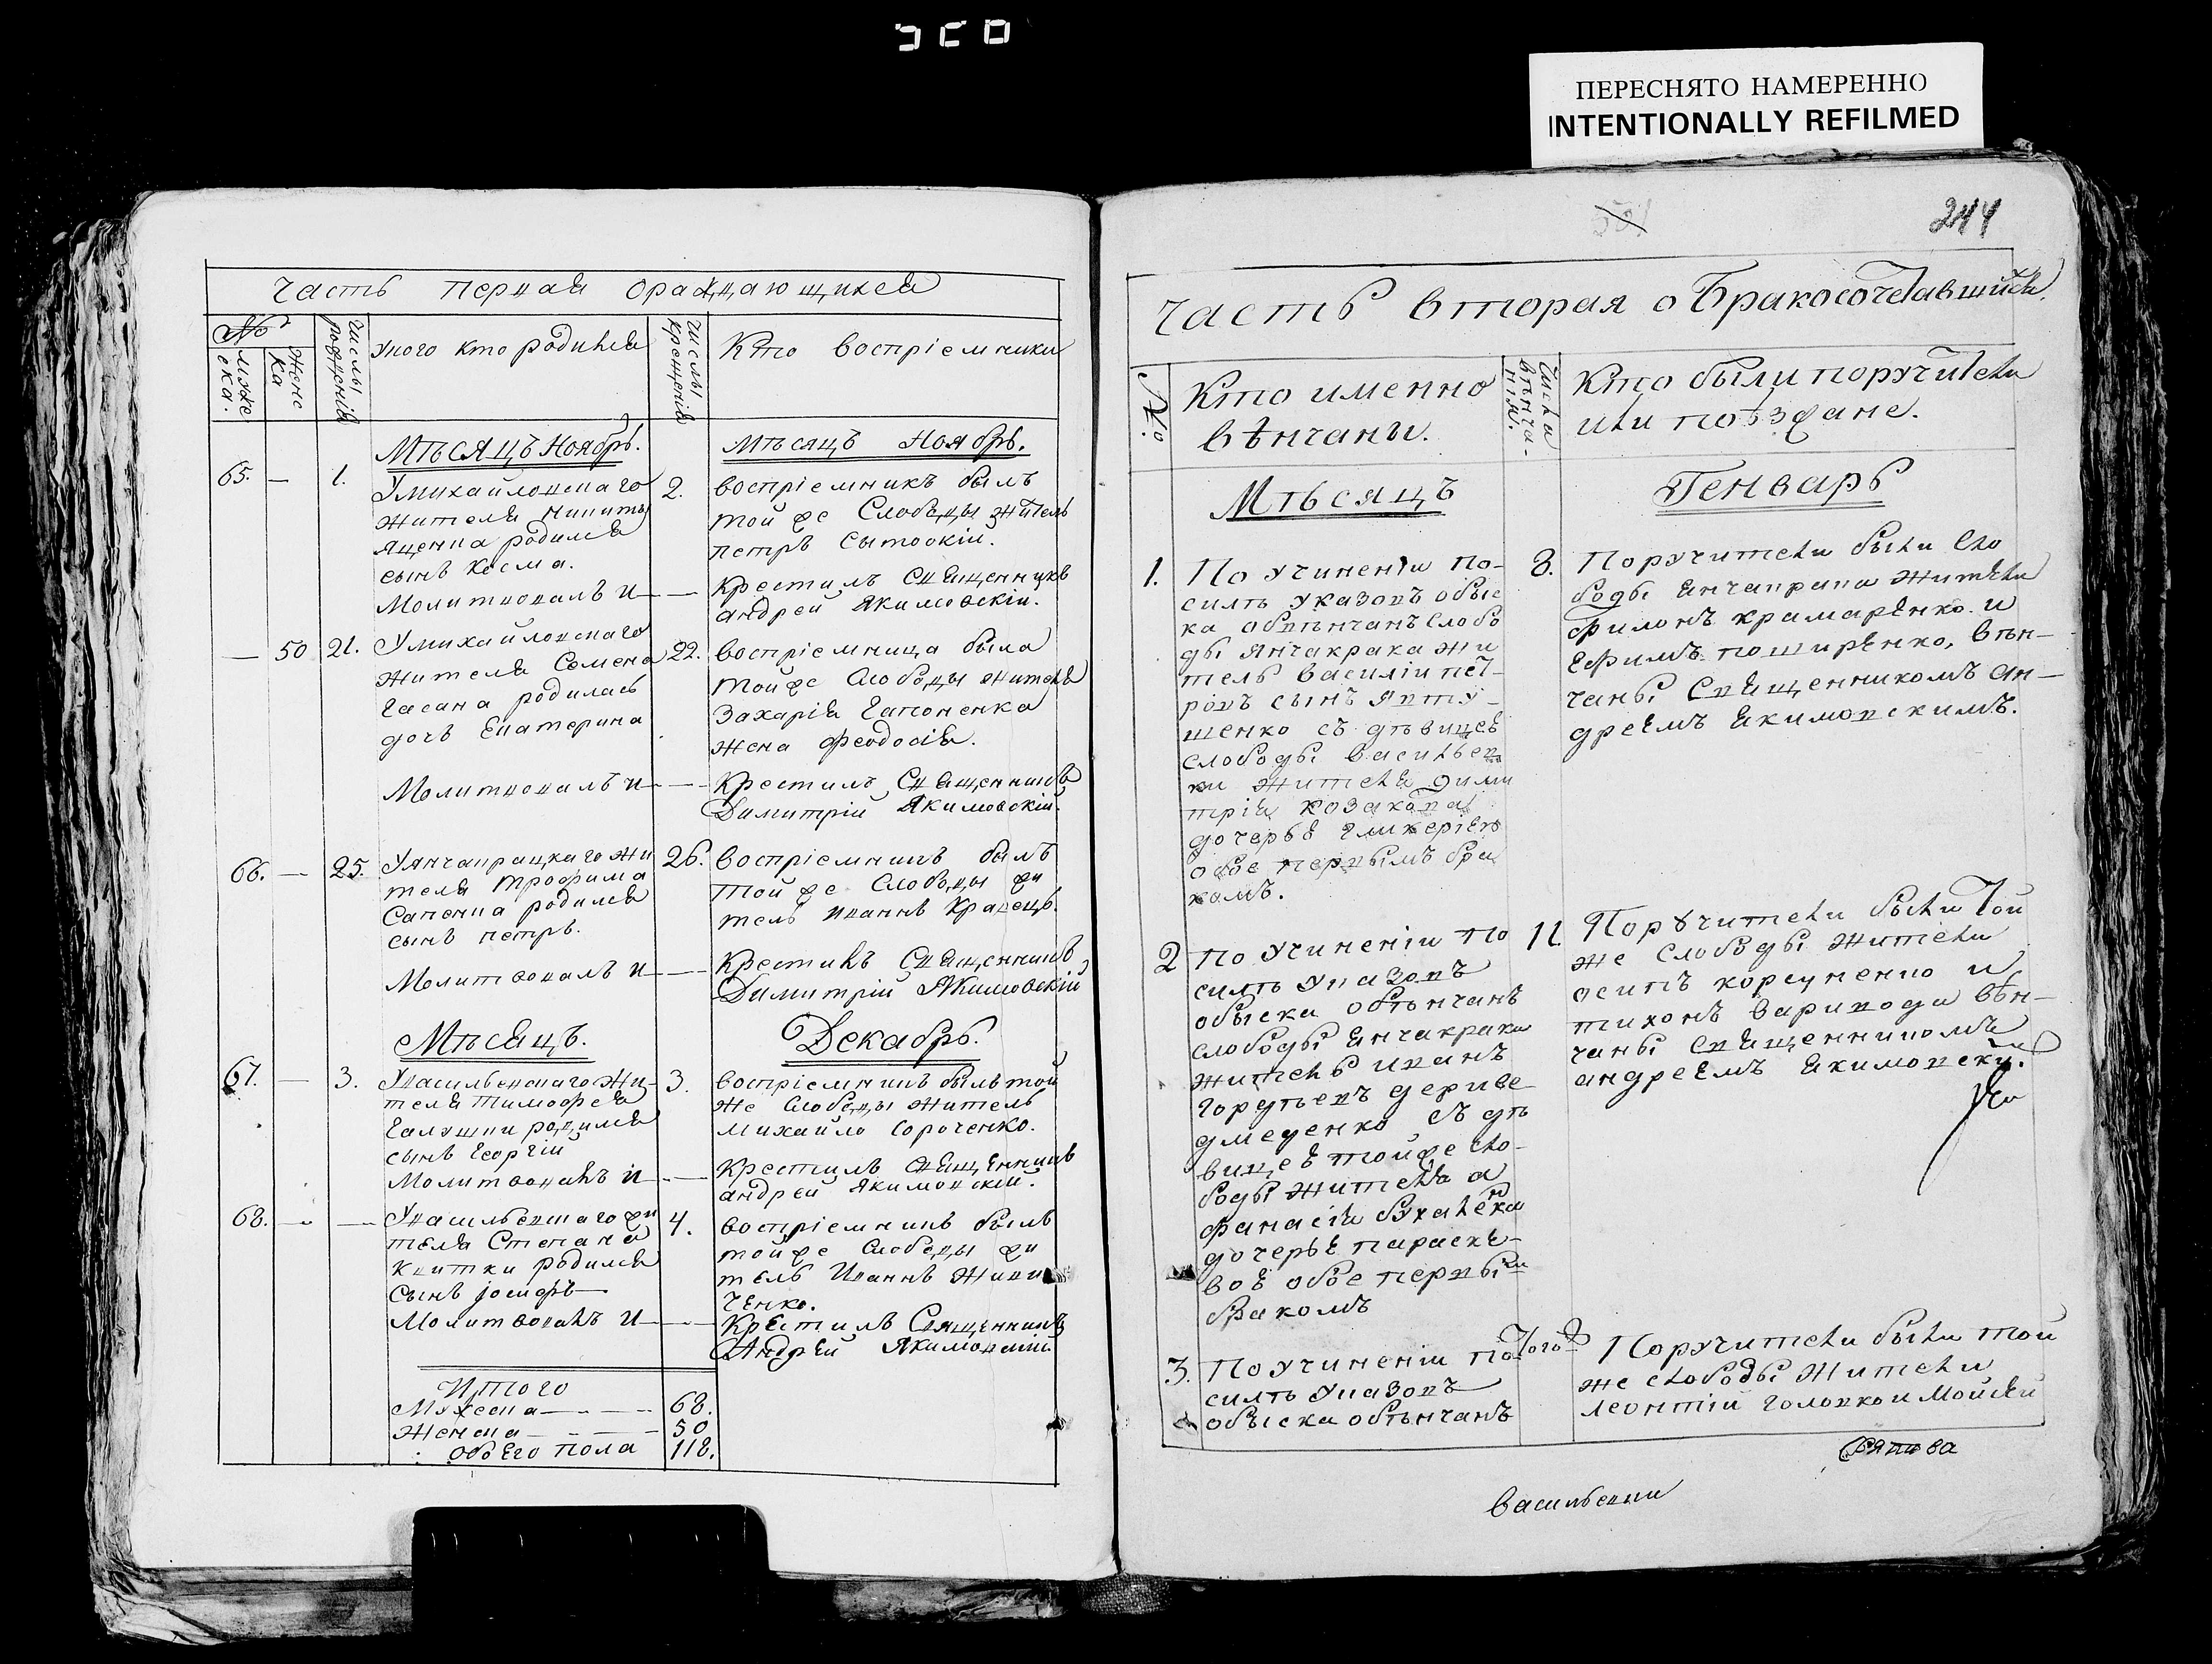 ПЕРЕСНЯТО НАМЕРЕННО
INTENTIONALLY REFILMED
Часть первая ораждающихся
№
муже
ска.
Женс
ка
Числы
рождения
Укого кто родился
Числы
крещенія
Кто воспріемники
Мѣсяцъ Ноябрь.
Мѣсяцъ Ноябрь.
65. — 1.
Умихайловскаго
жителя Никиты
Яценка родился
сынъ Косма.
Молитвовалъ и
2.
воспріемникъ былъ
той же Слободы житель
петръ Сытоокій.
Крестилъ Священникъ
андрей Якимовскій.
— 50 21.
Умихайловскаго
жителя Семена
Гасана родилась
дочь Екатерина
Молитвовалъ и
22.
воспріемница была
тойже Слободы жителя
Захарія Гапоненка
жена феодосія.
Крестилъ Священникъ
Димитрій Якимовскій.
66. — 25.
Уянчакрацкаго жи
теля Трофима
Сапенка родился
сынъ петръ.
Молитвовалъ и
26.
воспріемникъ былъ
той же Слободы жи
тель Иоаннъ Кравецъ.
Крестилъ Священникъ
Димитрій Якимовскій
Мѣсяцъ.
Декабрь.
67. — 3.
Увасильевскаго жи-
теля Тимофея
Галушки родился
сынъ Георгій
Молитвовалъ и
3.
воспріемникъ былъ той
же Слободы житель
Михайло Сороченко.
Крестилъ Священникъ
андрей Якимовскій.
68. — —
Увасильевскаго жи
теля Степана
Квитки родился
Сынъ Іосифъ
Молитвовалъ и
4.
воспріемникъ былъ
тойже Слободы жи
тель Иоаннъ
ченко.
Крестилъ Священникъ
Андрей Якимовскій
Итого
Мужеска 68.
Женска 50
обоего пола 118.
244
Часть вторая о Бракосочетавшихся.
№.
Кто именно
вѣнчаны.
Числа
вѣнча-
нія.
Кто были поручители
или поѣзжане.
Мѣсяцъ
Генварь
1.
По учиненіи по-
силѣ указовъ обыс
ка обвѣнчанъ слобо
ды Янчакрака жи
тель василій пет-
ровъ сынъ Явту-
шенко съ дѣвицею
слободы васильев
ки жителя дими
трія козакова
дочерью гликеріею
обое первымъ бра
комъ.
8.
Поручители были Сло
боды Янчакрака жители
филонъ крамаренко и
Ефимъ поширенко, вѣн-
чаны Священникомъ ан-
дреемъ Якимовскимъ.
2
по учиненіи по
силѣ указовъ
обыска обвѣнчанъ
слободы Янчакрака
житель иванъ
гордѣевъ
съ дѣ
вицею тойже сло-
боды жителя а
фанасія
дочерью параске-
вою обое первым
бракомъ
11.
Поручители были той
же слободы жители
осипъ корсуненко и
тихонъ варивода вѣн-
чаны Священникомъ
андреемъ Якимовски.
3.
По учиненіи по
силѣ указовъ
обыска обвѣнчанъ
Того
Поручители были той
же слободы жители
леонтій головко и Мойсей
васильевки